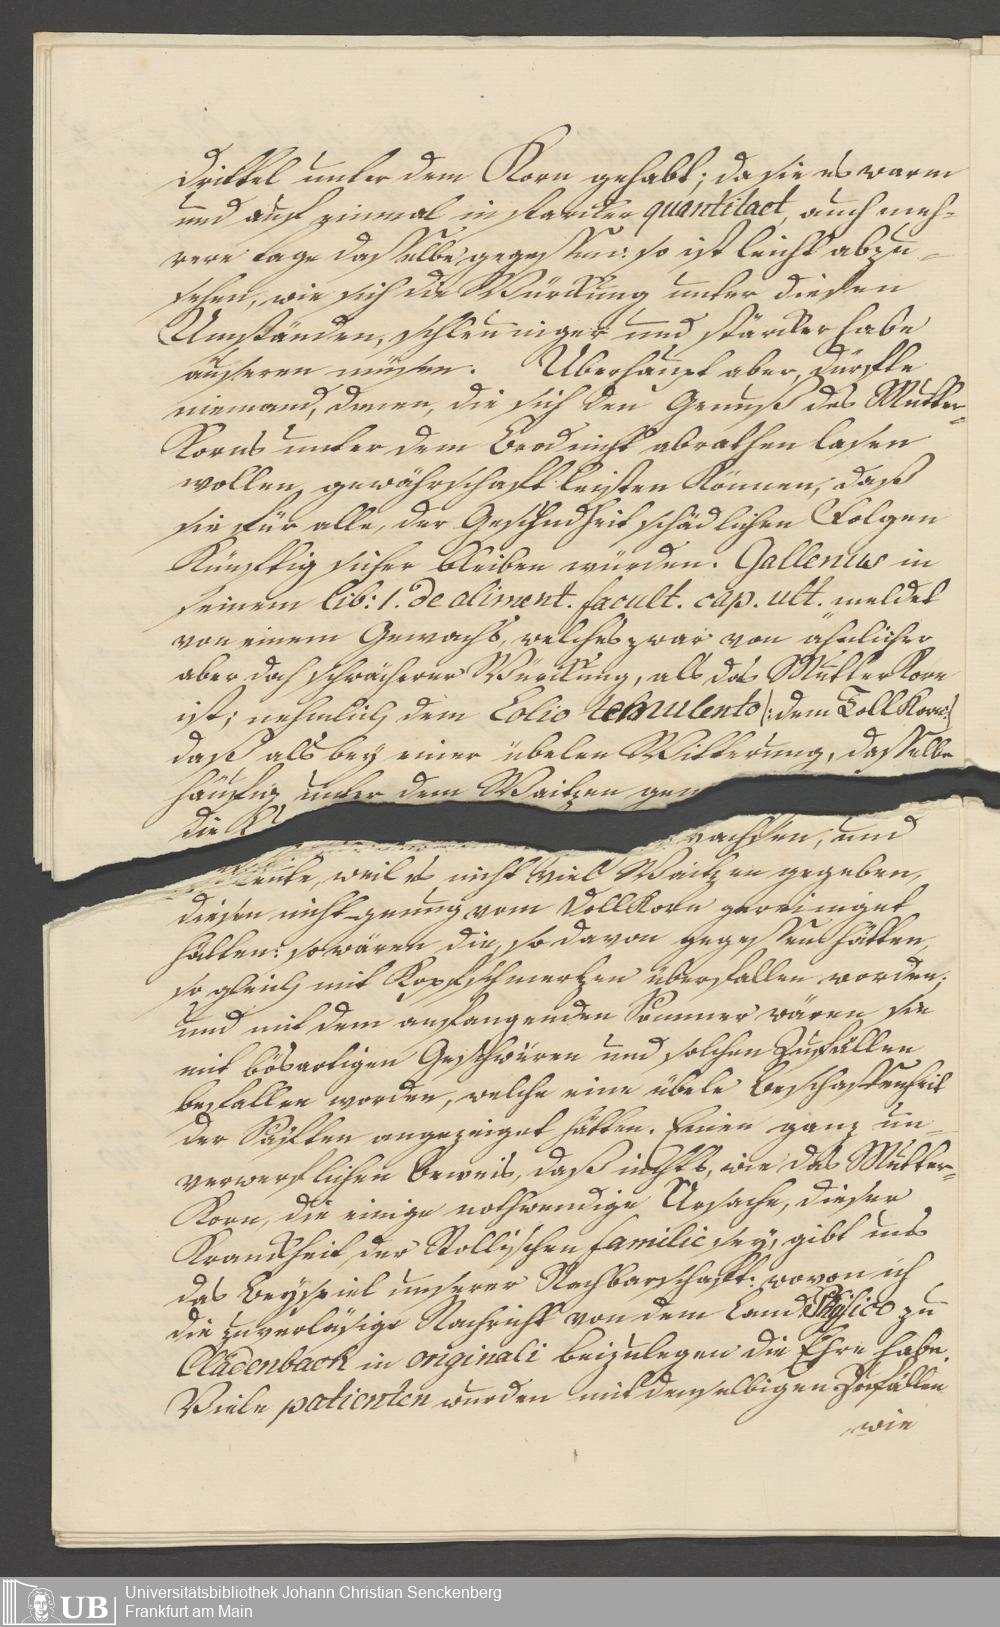 drittel unter dem Korn gehabt; da sie es warm
und auf einmal in starcker quantitaet, auch meh-
rere tage dasselbe gegessen: so ist leicht abzu-
sehen, wie sich die Würckung unter diesen
Umständen, schleuniger und stärcker habe
äuseren müsen. Uberhaupt aber, dürfte
niemand, denen, die sich den Genuß des Mutter-
Korns unter dem Brod nicht abrathen lasen
wollen, gewährschaft leisten können, daß
sie für alle, der Gesundheit schädlichen Folgen
künftig sicher bleiben würden. Gallenus in
seinem lib: 1. de aliment. facult. cap. ult. meldet
von einem Gewächs, welches zwar von ähnlicher
aber doch schwächerer Würckung, als das Mutter Korn
ist; nehmlich dem Lolio temulento (: dem Toll Korn:)
daß als bey einer übelen Witterung, dasselbe
häufig unter dem Waitzen gew
die
wachsen; und
Leute, weil es nicht viel Waitzen gegeben,
diesen nicht genung vom Dollkorn gereiniget
hätten: so wären die, so davon gegessen hätten,
so gleich mit Kopfschmertzen überfallen worden;
und mit dem anfangenden Sommer wären sie
mit bösartigen Geschwüren und solchen Zufällen
befallen worden, welche eine übele Beschaffenheit
der Säften angezeiget hätten. Einen ganz un-
verwerflichen Beweis, daß nichts, wie das Mutter-
Korn, die einige nothwendige Ursache, dieser
Kranckheit der Stollischen familie sey, gibt uns
das Beyspiel unserer Nachbarschaft: wovon ich
die zuverläsige Nachricht von dem Land Phÿsico zu
Cladenbach in originali beizulegen die Ehre habe.
Viele patienten wurden mit denselbigen Zufällen
wie
UB
Universitätsbibliothek Johann Christian Senckenberg
Frankfurt am Main